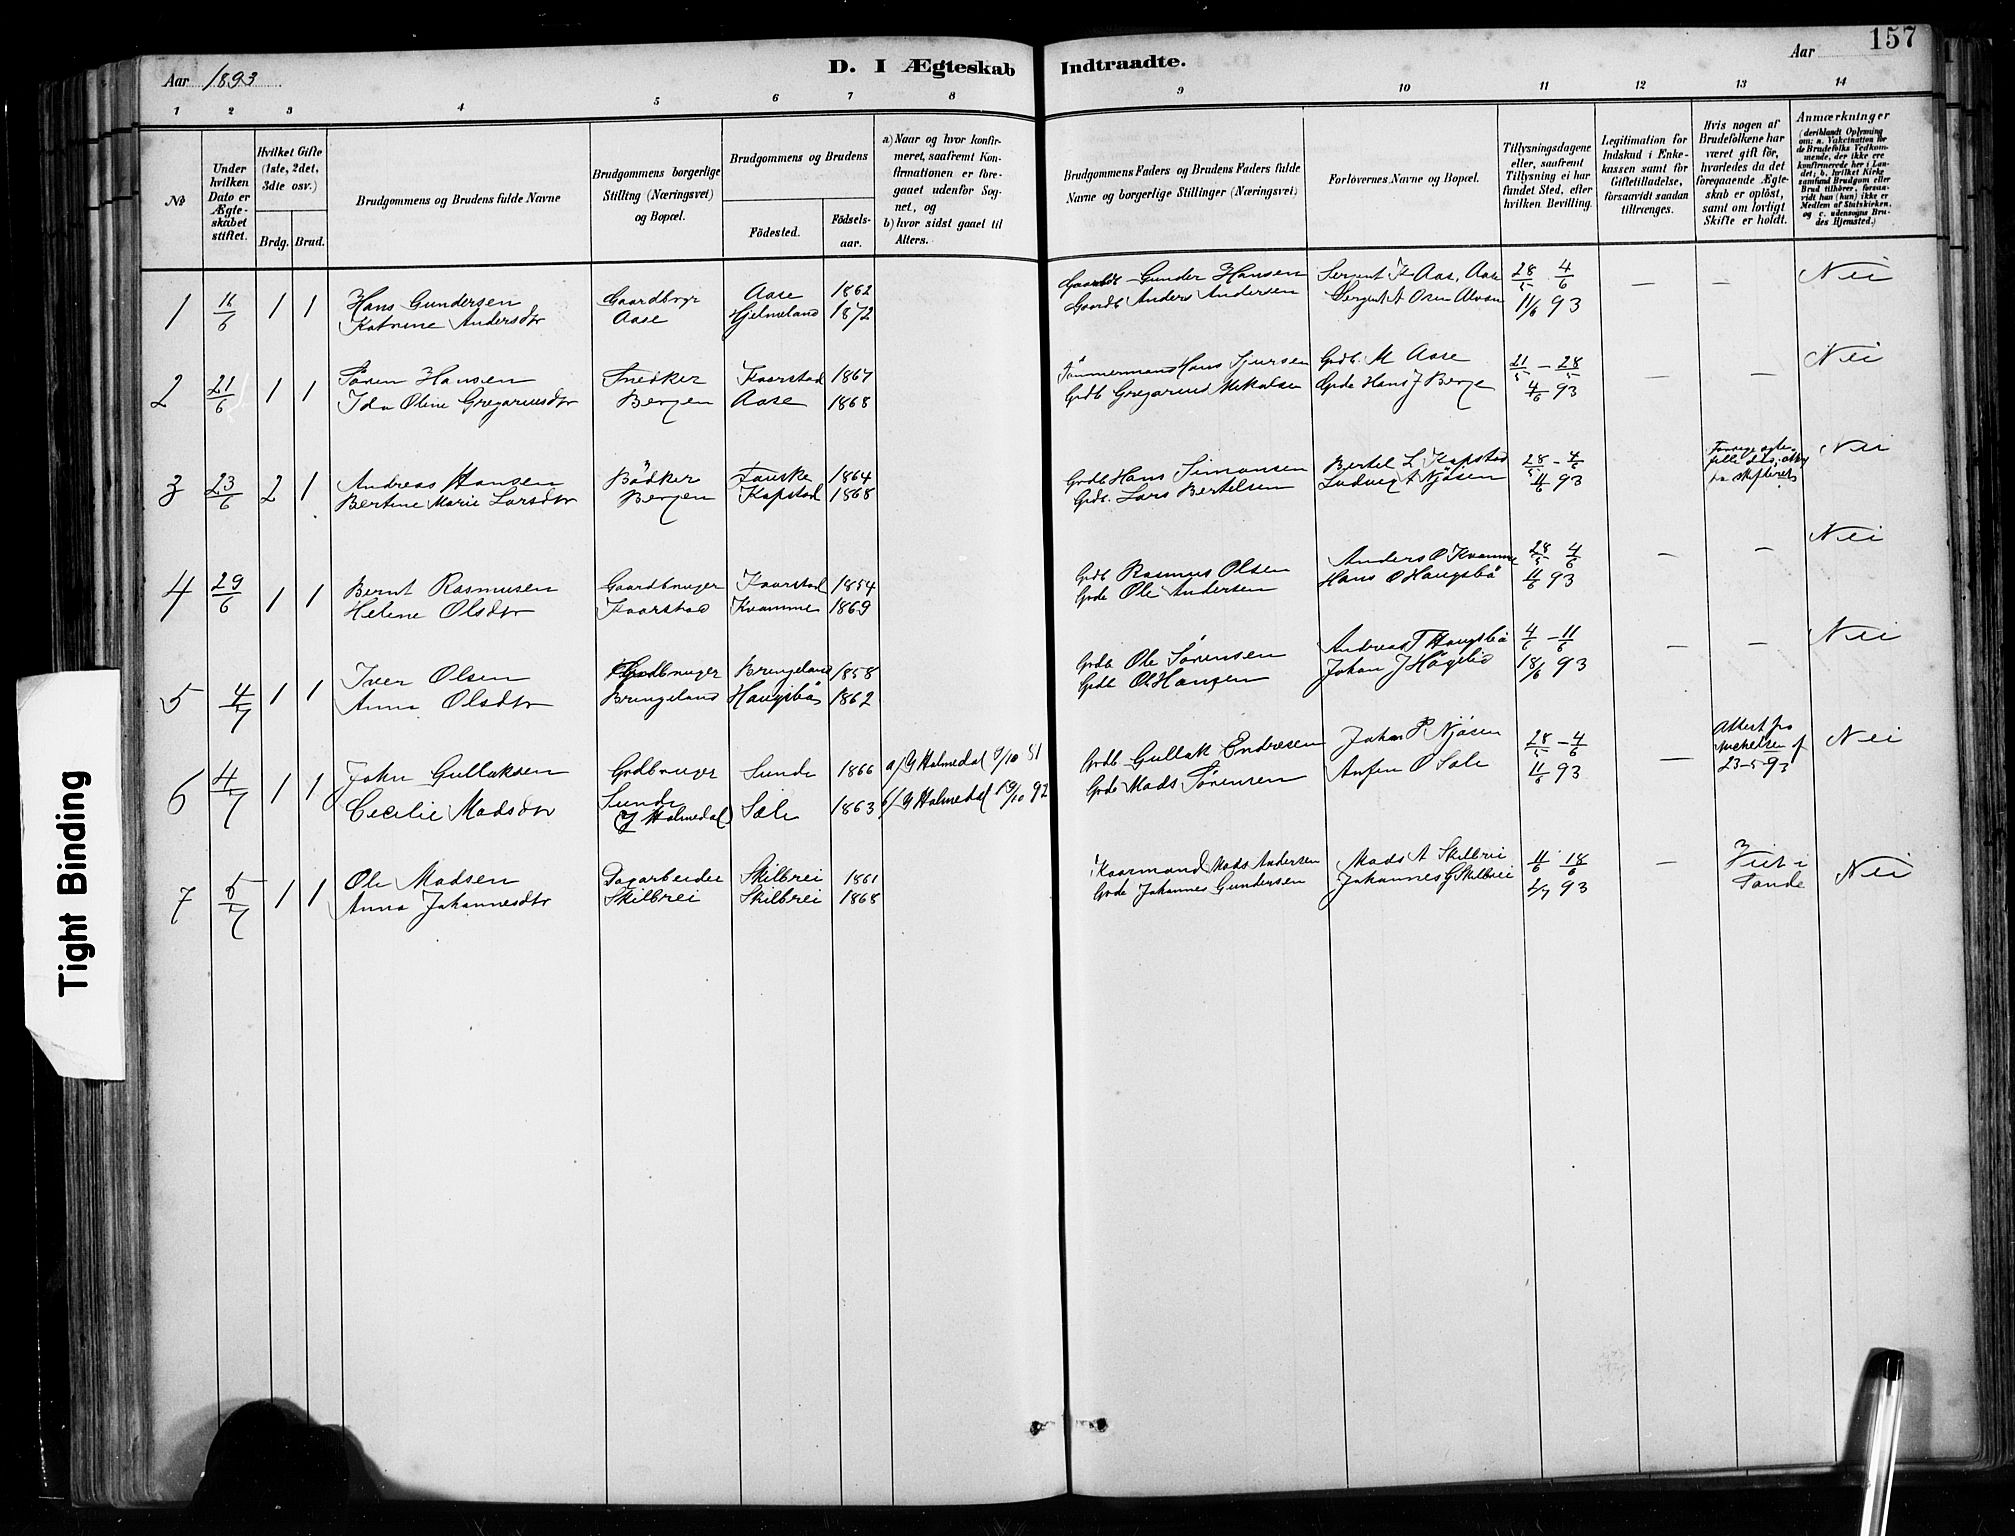 157
Aar 1893
D. I Ægteskab Indtraadte.
Aar
1 2 3 4 5 6 7 8 9 10 11 12 13 14
No
Under hvilken Dato er Ægteskabet stiftet.
Hvilket Gifte (1ste, 2det, 3die osv.)
Brdg. Brud.
Brudgommens og Brudens fulde Navne
Brudgommens borgerlige Stilling (Næringsvei) og Bopæl.
Brudgommens og Brudens
Födested.
Födselsaar.
a) Naar og hvor konfirmeret, saafremt Konfirmationen er foregaaet udenfor Sognet, og
b) hvor sidst gaaet til Alters.
Brudgommens Faders og Brudens Faders fulde Navne og borgerlige Stillinger (Næringsvei)
Forlovernes Navne og Bopæl.
Tillysningsdagene eller, saafremt Tillysning ei har fundet Sted, efter hvilken Bevilling.
Legitimation for Indskud i Enkekassen samt for Giftetilladelse, forsaavidt saadan tiltrænges.
Hvis nogen af Brudefolkene har været gift för, hvorledes da det foregaaende Ægteskab er oplöst, samt om lovligt Skifte er holdt.
Anmærkninger
(deriblandt Oplysning om: a. Vakcination for de Brudefolks Vedkommende, der ikke ere konfirmerede her i Landet; b. hvilket Kirkesamfund Brudgom eller Brud tilhörer, forsaavidt han (hun) ikke er Medlem af Statskirken, og c. udensogns Brudes Hjemsted.)
1 11/6 1 1 Hans Gundersen Gaardbrgr Aase 1862 Gaardb Gunder Hansen Sergent K Aase, Aase 28/5 4/6 — — Nei
Katrine Andersdtr Aase Hjelmeland 1872 Gaardb Anders Andersen Sergent A Osen 11/6 93
2 21/6 1 1 Søren Hansen Snedker Kaarstad 1867 Tömmermand Hans Sjursen Grdb. M Aase 21/5 – 28/5 — — Nei
Ida Oline Gregariusdtr Bergen Aase 1868 Grdb Gregarius Mikalsen Grdb Hans J Berge 4/6 93
3 23/6 2 1 Andreas Hansen Bödker Fauske 1864 Grdb Hans Simonsen Bertel L Kapstad 28/5 – 4/6 Nei
Bertine Marie Larsdtr Bergen Kapstad 1868 Grdb. Lars Bertelsen Ludvig A Njösen 11/6 93
4 29/6 1 1 Bernt Rasmusen Gaardbruger Kaarstad 1854 Grdb Rasmus Olsen Anders O Kvamme 28/5 4/6 — — Nei
Helene Olsdtr Kaarstad Kvamme 1869 Grdb Ole Andersen Hans O Haugsbö 11/6 93
5 4/7 1 1 Iver Olsen Grdbruger Bringeland 1858 Grdb Ole Sørensen Andreas T Haugsbö 4/6 – 11/6 — — Nei
Anna Olsdtr Bringeland Haugsbö 1862 Grdb Ol Hansen Johan J 18/6 93
6 4/7 1 1 John Gullaksen Grdbruger Sunde 1866 a/ Y Holmedal 9/10 81 Grdb Gullak Endresen Johan P Njösen 28/5 – 4/6 — Attest fra 23-5-93 Nei
Cecilie Madsdtr Sunde Y Holmedal Sæle 1863 b/ Y Holmedal 10 92 Grdb Mads Sørensen Anfin O Sæle 11/6 93
7 5/7 1 1 Ole Madsen Dagarbeider Skilbrei 1861 Kaarmand Mads Andersen Mads A Skilbrei 11/6 18/6 — Viet i Sande Nei
Anna Johannesdtr Skilbrei Skilbrei 1868 Grdb Johannes Gundersen Johannes G Skilbrei 2/7 93
Tight Binding